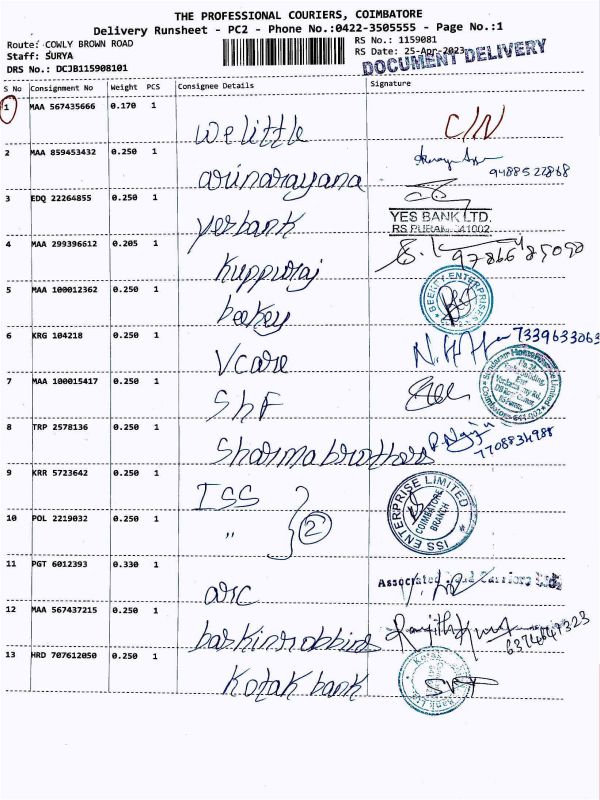 THE PROFESSIONAL COURIERS, COIMBATORE
Delivery Runsheet - PC2 - Phone No.:0422-3505555 - Page No.:1
Route: COWLY BROWN ROAD
RS No.: 1159081
Staff: SURYA
RS Date: 25-Apr-2023
DRS No.: DCJB115908101
DOCUMENT DELIVERY
S No Consignment No Weight PCS Consignee Details Signature
1 MAA 567435666 0.170 1 welittle C/N
2 MAA 859453432 0.250 1 arunarayana 9488522868
3 EDQ 22264855 0.250 1 yesbank
YES BANK LTD.
RS PURAM-641002
4 MAA 299396612 0.205 1 Kuppuraj
5 MAA 100012362 0.250 1 beekey
BEEKEY ENTERPRISES
6 KRG 104218 0.250 1 Vcare 7339633063
7 MAA 100015417 0.250 1 ShF
Sundaram Home Finance Limited
Coimbatore-641 002
8 TRP 2578136 0.250 1 Sharma brothers 7708834988
9 KRR 5723642 0.250 1 ISS
ISS ENTERPRISE LIMITED
COIMBATORE BRANCH
10 POL 2219032 0.250 1 " 2
11 PGT 6012393 0.330 1 arc
Associated Road Carriers Ltd.
12 MAA 567437215 0.250 1 baskinrobbins 6374647323
13 HRD 707612050 0.250 1 Kotak bank